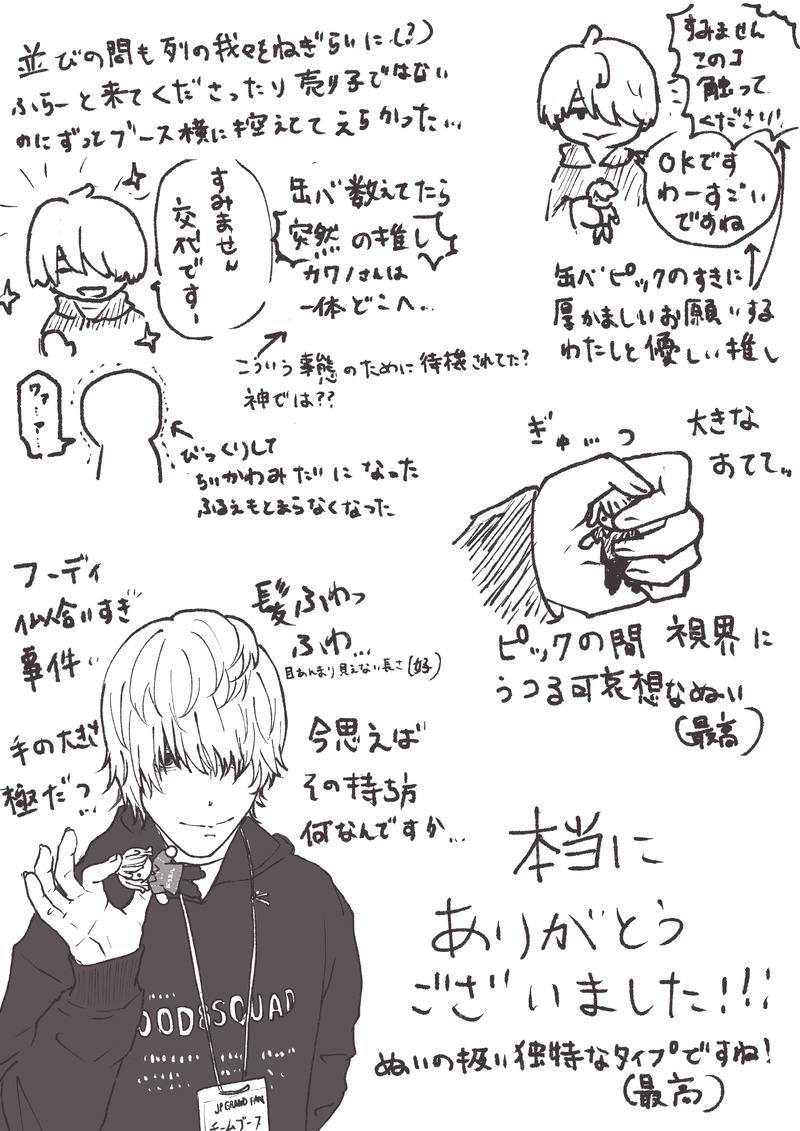 並びの間も列の我々をねぎらいに(?)
ふらーと来てくださったり売り子ではない
のにずっとブース横に控えててえらかった…
すみません
交代ですー
缶バ数えてたら
突然の推し
カワノさんは
一体どこへ…
こういう事態のために待機されてた?
神では??
ワァ…
…ァ…
びっくりして
ちいかわみたいになった
ふるえもとまらなくなった
すみません
このコ
触って
ください!
OKです
わーすごい
ですね
缶バピックのすきに
厚かましいお願いする
わたしと優しい推し
ぎゅ…っ
大きな
おてて…
ピックの間 視界に
うつる可哀想なぬい
(最高)
フーディ
似合いすぎ
事件…
髪ふわっ
ふわ…
目あんまり見えない長さ(好)
手の大きさ
極だつ…
今思えば
その持ち方
何なんですか…
OOD&SQUAD
JP GRAND FAN
チームブース
本当に
ありがとう
ございました!!!
ぬいの扱い独特なタイプですね!
(最高)